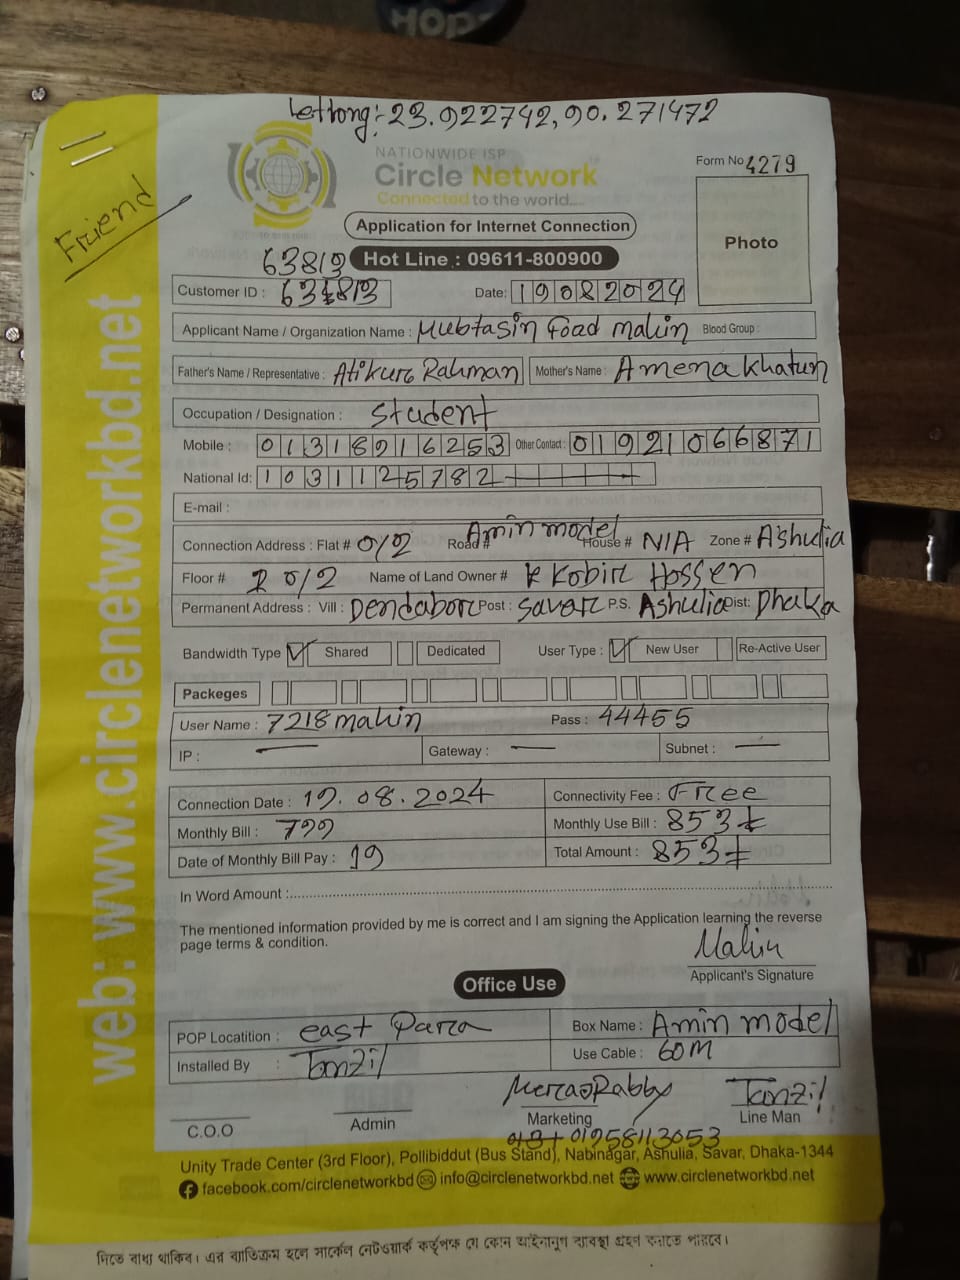 HOP
Letlong:- 23.922742, 90.271472
NATIONWIDE ISP
Circle Network
Connected to the world....
Form No 4279
Friend
Application for Internet Connection
Photo
63813 Hot Line : 09611-800900
Customer ID : Date: 19082024
Applicant Name / Organization Name : Mubtasin Foad Mahin Blood Group :
Father's Name / Representative : Atikur Rahman Mother's Name : Amena Khatun
Occupation / Designation : Student
Mobile : 01318916253 Other Contact : 01921066871
National Id: 1031125782
E-mail :
Connection Address : Flat # 0/2 Road # Amin model House # N/A Zone # Ashulia
Floor # 2 0/2 Name of Land Owner # Kobir Hossen
Permanent Address : Vill : Dendabor Post : Savar P.S. Ashulia Dist: Dhaka
Bandwidth Type Shared Dedicated User Type : New User Re-Active User
Packeges
User Name : 7218mahin Pass : 44455
IP : — Gateway : — Subnet : —
Connection Date : 19.08.2024 Connectivity Fee : Free
Monthly Bill : 799 Monthly Use Bill : 853
Date of Monthly Bill Pay : 19 Total Amount : 853
In Word Amount :
The mentioned information provided by me is correct and I am signing the Application learning the reverse
page terms & condition.
Mahin
Applicant's Signature
Office Use
POP Locatition : east Para Box Name : Amin model
Installed By : Tanzil Use Cable : 60M
Rabby Tanzil
C.O.O Admin Marketing Line Man
01958113053
Unity Trade Center (3rd Floor), Pollibiddut (Bus Stand), Nabinagar, Ashulia, Savar, Dhaka-1344
facebook.com/circlenetworkbd info@circlenetworkbd.net www.circlenetworkbd.net
web: www.circlenetworkbd.net
দিতে বাধ্য থাকিব। এর ব্যতিক্রম হলে সার্কেল নেটওয়ার্ক কর্তৃপক্ষ যে কোন আইনানুগ ব্যবস্থা গ্রহণ করাতে পারবে।